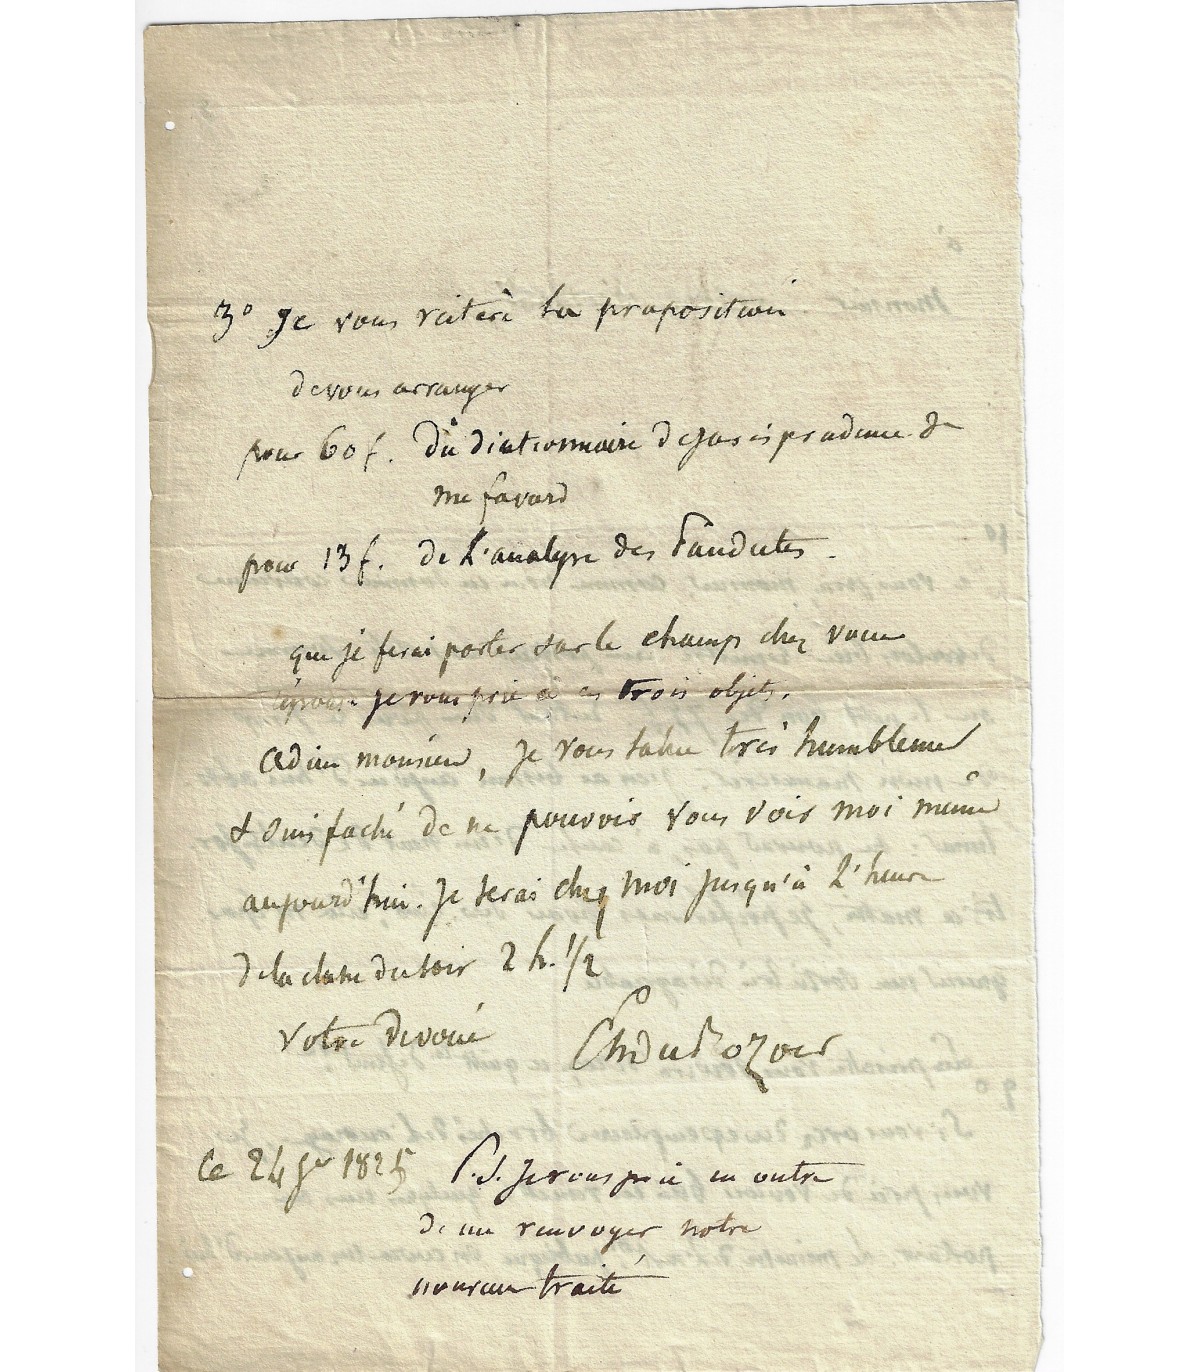 3° Je vous réitère la proposition
de vous arranger
pour 60 f. du dictionnaire de jurisprudence de
me favard
pour 13 f. de l'analyse des Pandectes.
que je ferai porter sur le champ chez vous
je vous prie à ces trois objets.
adieu monsieur, je vous salue très humblement
& suis faché de ne pouvoir vous voir moi même
aujourd'hui. Je serai chez moi jusqu'à l'heure
de la classe du soir 2 h. 1/2
votre dévoué
Ch du Rozoir
Ce 24 Jer 1825
P.S. Je vous prie en outre
de me renvoyer notre
nouveau traité